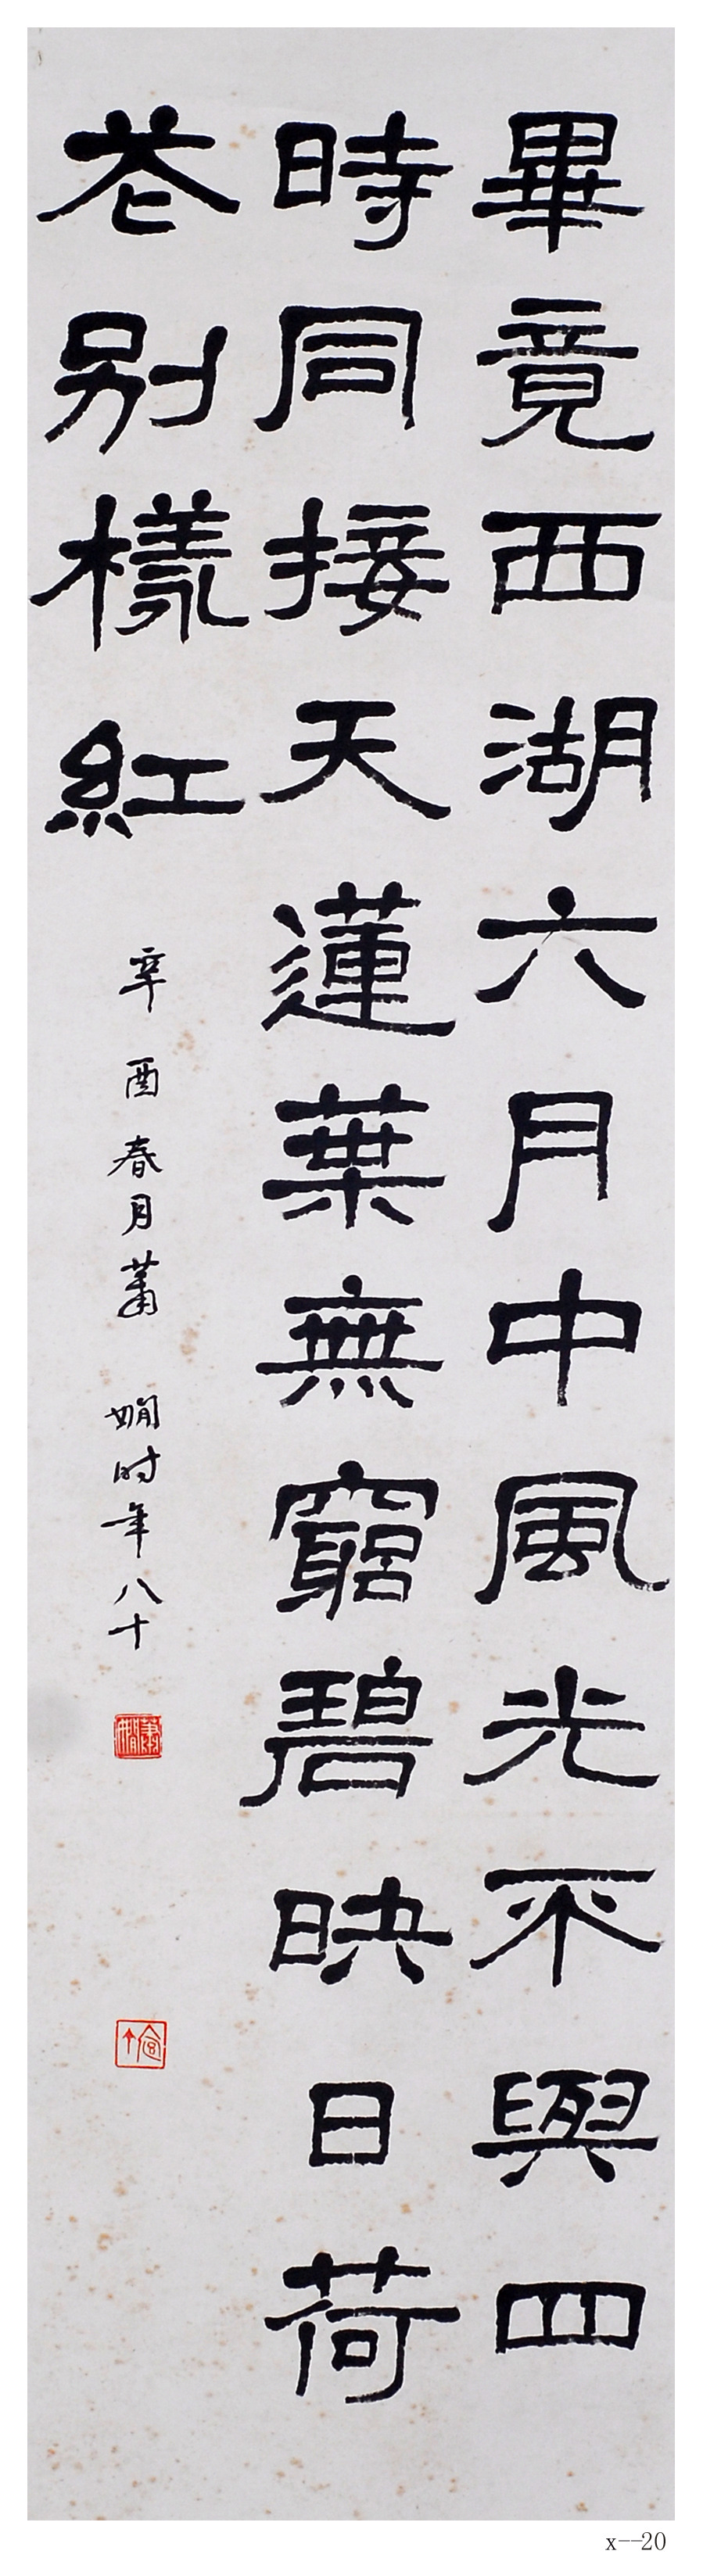 畢竟西湖六月中風光不與四
時同接天蓮葉無窮碧映日荷
花別樣紅
辛酉春月蕭嫻时年八十
蕭嫻
x--20